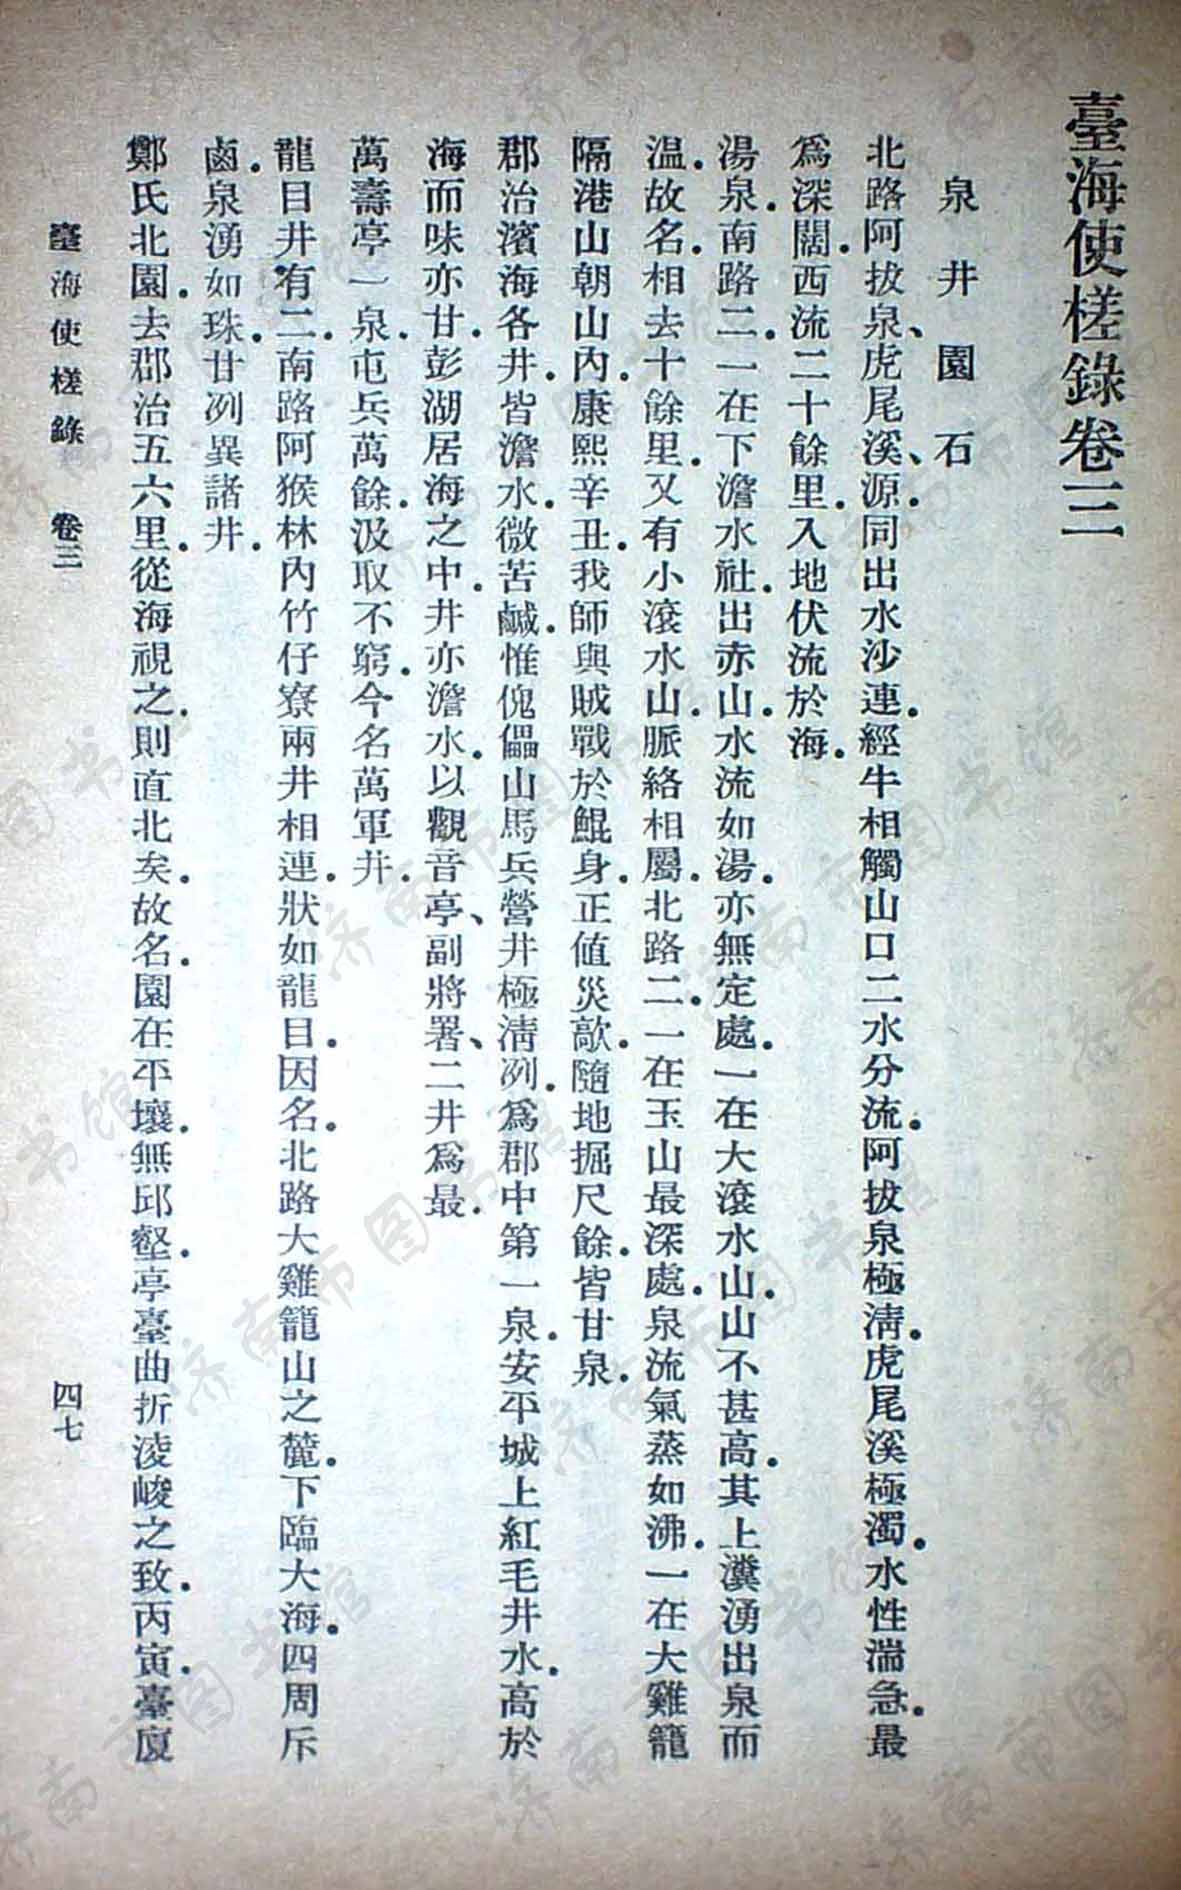 臺海使槎錄卷三
泉井園石
北路阿拔泉、虎尾溪、源同出水沙連.經牛相觸山口二水分流.阿拔泉極淸.虎尾溪極濁.水性湍急.最
爲深闊.西流二十餘里.入地伏流於海.
湯泉.南路二.一在下澹水社.出赤山.水流如湯.亦無定處.一在大滾水山.山不甚高.其上瀵湧出泉而
温.故名.相去十餘里.又有小滾水山.脈絡相屬.北路二.一在玉山最深處.泉流氣蒸如沸.一在大雞籠
隔港山朝山內.康熙辛丑.我師與賊戰於鯤身.正値災歊.隨地掘尺餘.皆甘泉.
郡治濱海各井.皆澹水.微苦鹹.惟傀儡山馬兵營井極淸冽.爲郡中第一泉.安平城上紅毛井水.高於
海而味亦甘.彭湖居海之中.井亦澹水.以觀音亭、副將署、二井爲最.
萬壽亭一泉.屯兵萬餘.汲取不窮.今名萬軍井.
龍目井有二.南路阿猴林內竹仔寮兩井相連.狀如龍目.因名.北路大雞籠山之麓.下臨大海.四周斥
鹵.泉湧如珠.甘冽異諸井.
鄭氏北園.去郡治五六里.從海視之.則直北矣.故名.園在平壤.無邱壑.亭臺曲折淩峻之致.丙寅.臺廈
臺海使槎錄 卷三 四七
济南市图书馆